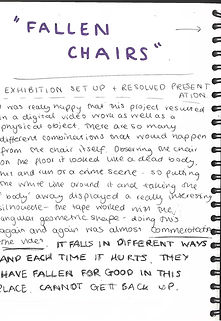 "FALLEN
CHAIRS"
EXHIBITION SET UP + RESOLVED PRESENT
ATION
I was really happy that this project resulted
in a digital video work as well as a
physical object. There are so many
different combinations that would happen
from the chair itself. Observing the chair
on the floor it looked like a dead body,
hit and run or a crime scene - so putting
the white line around it and taking the
'body' away displayed a really interesting
silhouette - the tape worked with the
angular geometric shape - doing this
again and again was almost commemorate
the video IT FALLS IN DIFFERENT WAYS
AND EACH TIME IT HURTS. THEY
HAVE FALLEN FOR GOOD IN THIS
PLACE. CANNOT GET BACK UP.